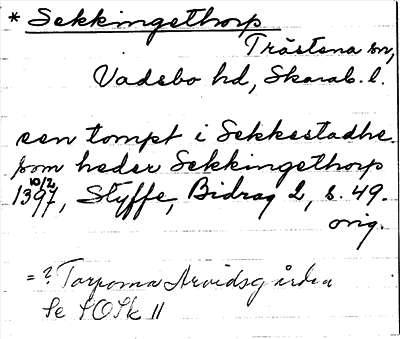 * Sekkingethorp
Trästena sn,
Vadsbo hd, Skarab. l.
een tompt i Sekkestadhe
som heder Sekkingethorp
10/2
1397, Styffe, Bidrag 2, s. 49.
orig.
= ? Torpoma Arvidsgården
Se SOSk 11